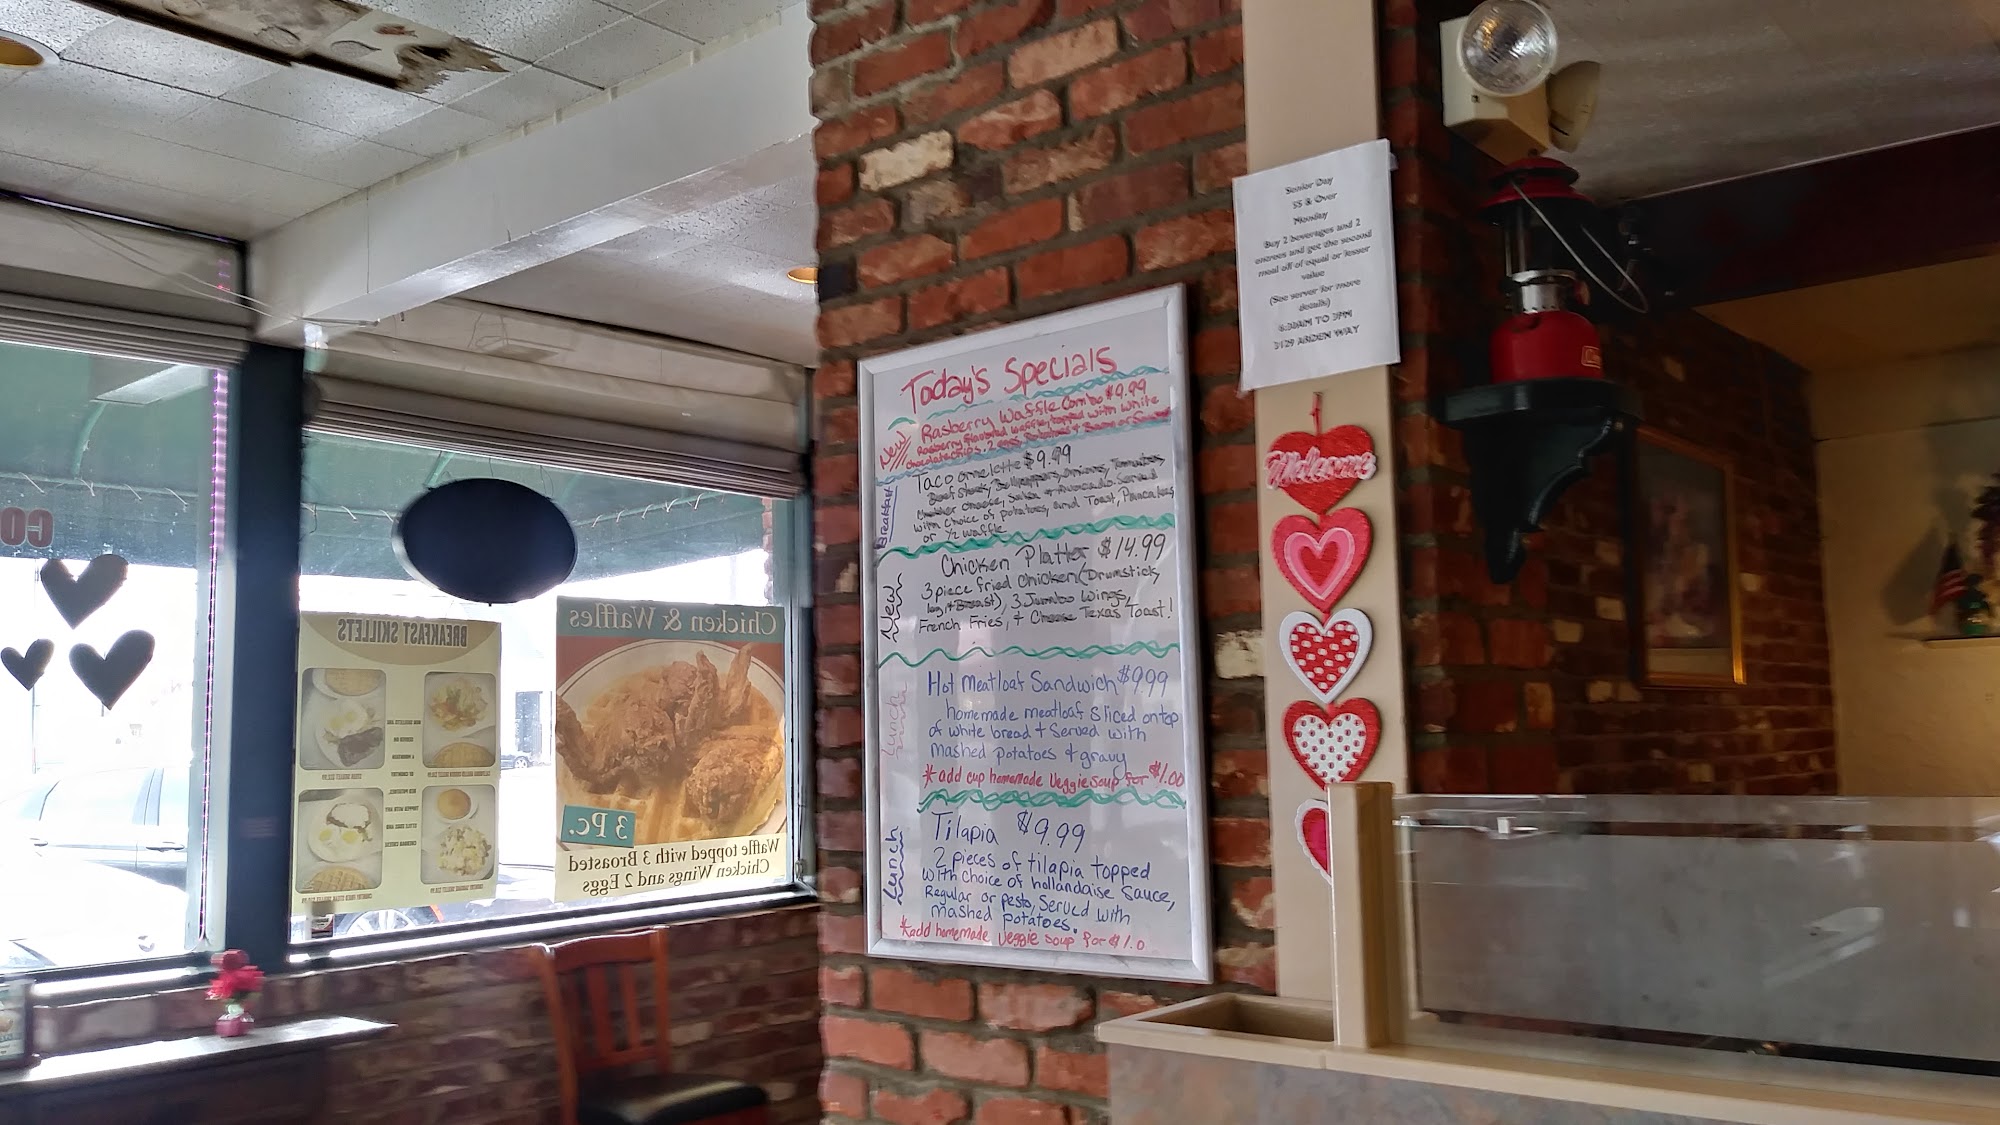 Today's Specials
New
Rasberry Waffle Combo $9.99
Rasberry flavored waffle, topped with white
chocolate chips. 2 eggs Potatoes &
Breakfast
Taco omelette $9.99
onions, Tomatoes,
Salsa & Avocado. Served
with choice of potatoes, and Toast, Pancakes
or 1/2 waffle
New
Chicken Platter $14.99
3 piece fried chicken (Drumstick,
Breast), 3 Jumbo Wings,
French Fries, & Cheese Texas Toast!
Lunch
Hot Meatloaf Sandwich $9.99
homemade meatloaf sliced on top
of white bread & Served with
mashed potatoes & gravy
* add cup homemade Veggie Soup for $1.00
Lunch
Tilapia $9.99
2 pieces of tilapia topped
with choice of hollandaise sauce,
Regular or pesto, Served with
mashed potatoes.
* add homemade Veggie soup for $1.0
Senior Day
55 & Over
Monday
Buy 2 beverages and 2
entrees and get the second
meal off of equal or lesser
value
(See server for more
details)
6:30AM TO 3PM
3129 ARDEN WAY
Welcome
CO
BREAKFAST SKILLETS
Chicken & Waffles
3 Pc.
Waffle topped with 3 Broasted
Chicken Wings and 2 Eggs